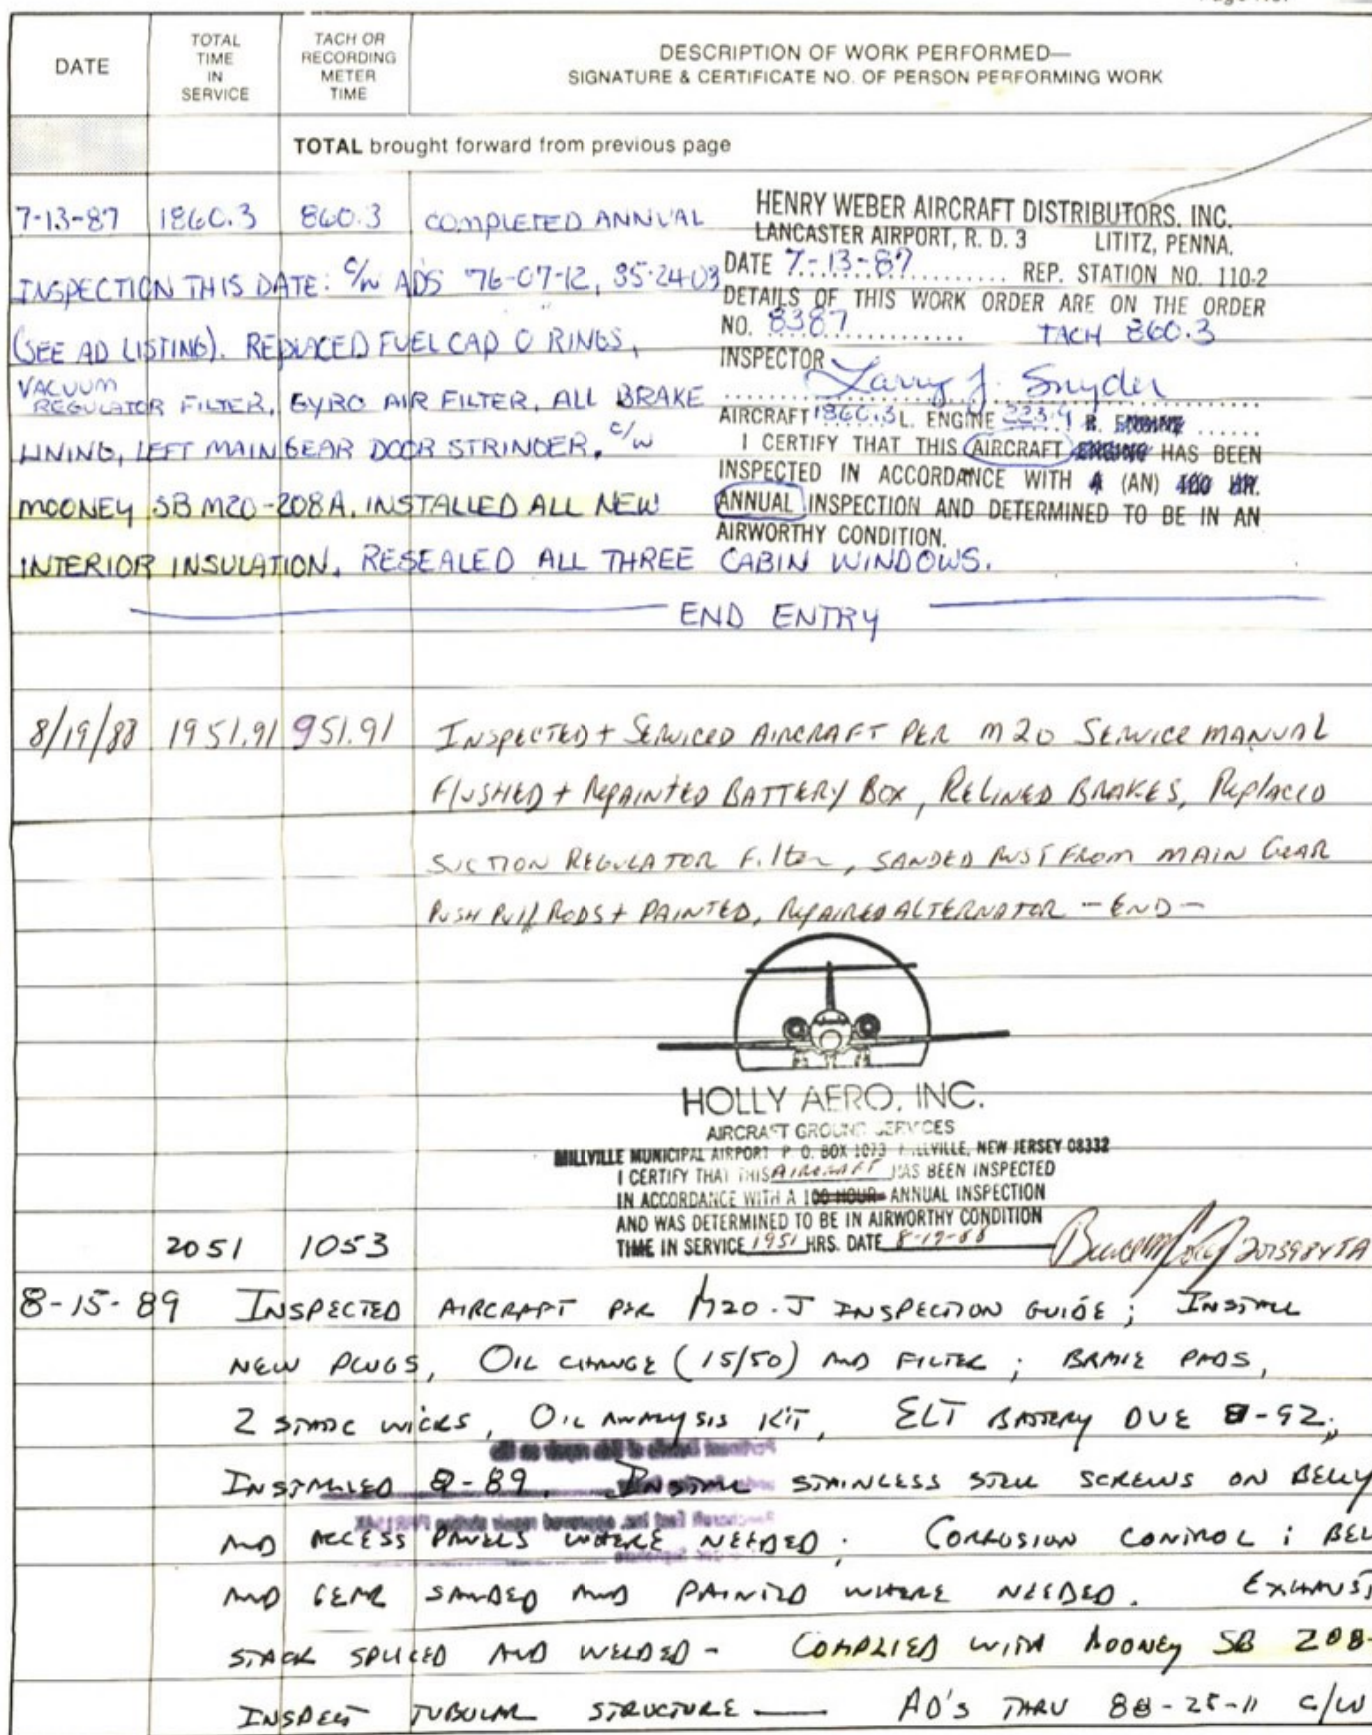 DATE
TOTAL TIME IN SERVICE
TACH OR RECORDING METER TIME
DESCRIPTION OF WORK PERFORMED—
SIGNATURE & CERTIFICATE NO. OF PERSON PERFORMING WORK
TOTAL brought forward from previous page
7-13-87 1860.3 860.3 COMPLETED ANNUAL
INSPECTION THIS DATE: C/W ADS 76-07-12, 85-24-03
(SEE AD LISTING). REPLACED FUEL CAP O RINGS,
VACUUM
REGULATOR FILTER, GYRO AIR FILTER, ALL BRAKE
LINING, LEFT MAIN GEAR DOOR STRINGER, C/W
MOONEY SB M20-208A, INSTALLED ALL NEW
INTERIOR INSULATION, RESEALED ALL THREE CABIN WINDOWS.
END ENTRY
HENRY WEBER AIRCRAFT DISTRIBUTORS, INC.
LANCASTER AIRPORT, R. D. 3 LITITZ, PENNA.
DATE 7-13-87 REP. STATION NO. 110-2
DETAILS OF THIS WORK ORDER ARE ON THE ORDER
NO. 8387 TACH 860.3
INSPECTOR Larry J. Snyder
AIRCRAFT 1860.3 L. ENGINE 223.9 R. ENGINE
I CERTIFY THAT THIS AIRCRAFT ENGINE HAS BEEN
INSPECTED IN ACCORDANCE WITH A (AN) 100 HR.
ANNUAL INSPECTION AND DETERMINED TO BE IN AN
AIRWORTHY CONDITION.
8/19/88 1951.91 951.91 INSPECTED + SERVICED AIRCRAFT PER M20 SERVICE MANUAL
FLUSHED + REPAINTED BATTERY BOX, RELINED BRAKES, REPLACED
SUCTION REGULATOR FILTER, SANDED RUST FROM MAIN GEAR
PUSH PULL RODS + PAINTED, REPAIRED ALTERNATOR - END -
HOLLY AERO, INC.
AIRCRAFT GROUND SERVICES
MILLVILLE MUNICIPAL AIRPORT P. O. BOX 1073 MILLVILLE, NEW JERSEY 08332
I CERTIFY THAT THIS AIRCRAFT HAS BEEN INSPECTED
IN ACCORDANCE WITH A 100 HOUR ANNUAL INSPECTION
AND WAS DETERMINED TO BE IN AIRWORTHY CONDITION
TIME IN SERVICE 1951 HRS. DATE 8-19-88
2051 1053
8-15-89 INSPECTED AIRCRAFT PER M20-J INSPECTION GUIDE; INSTALL
NEW PLUGS, OIL CHANGE (15/50) AND FILTER; BRAKE PADS,
2 STATIC WICKS, OIL ANALYSIS KIT, ELT BATTERY DUE 8-92;
INSTALLED 8-89. INSTALL STAINLESS STEEL SCREWS ON BELLY
AND ACCESS PANELS WHERE NEEDED. CORROSION CONTROL; BEL
AND GEAR SANDED AND PAINTED WHERE NEEDED. EXHAUST
STACK SPLICED AND WELDED - COMPLIED WITH MOONEY SB 208-
INSPECT TUBULAR STRUCTURE — AD'S THRU 88-25-11 C/W